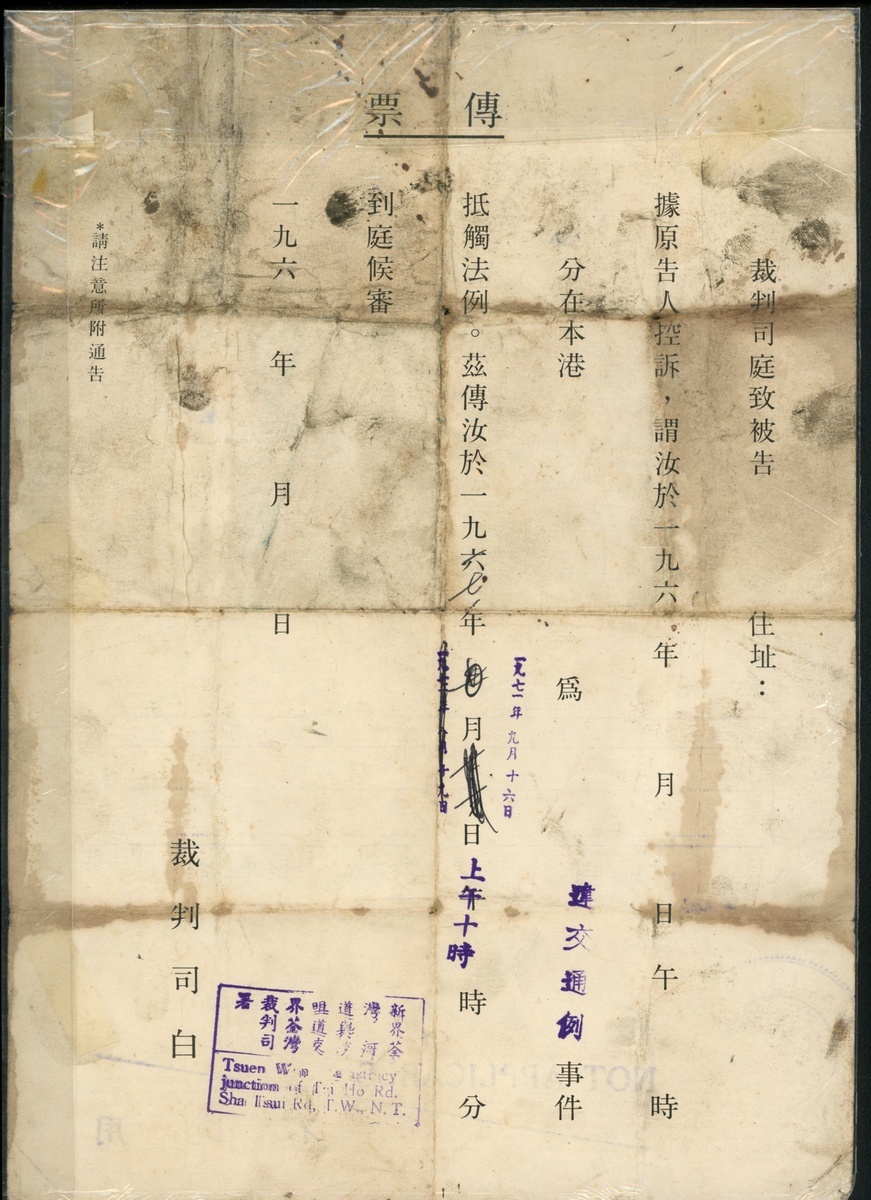 傳票
裁判司庭致被告 住址：
據原告人控訴，謂汝於一九六 年 月 日 午 時
分在本港 為 違交通例 事件
一九七一年九月十六日
抵觸法例。茲傳汝於一九六 年 月 日 上午十時 時 分
到庭候審
一九六 年 月 日
裁判司白
*請注意所附通告
新界荃
灣 河
道
咀道交
界荃灣
裁判司
署
Tsuen
junction of Tai Ho Rd.
Sha Tsui Rd, T.W. N.T.